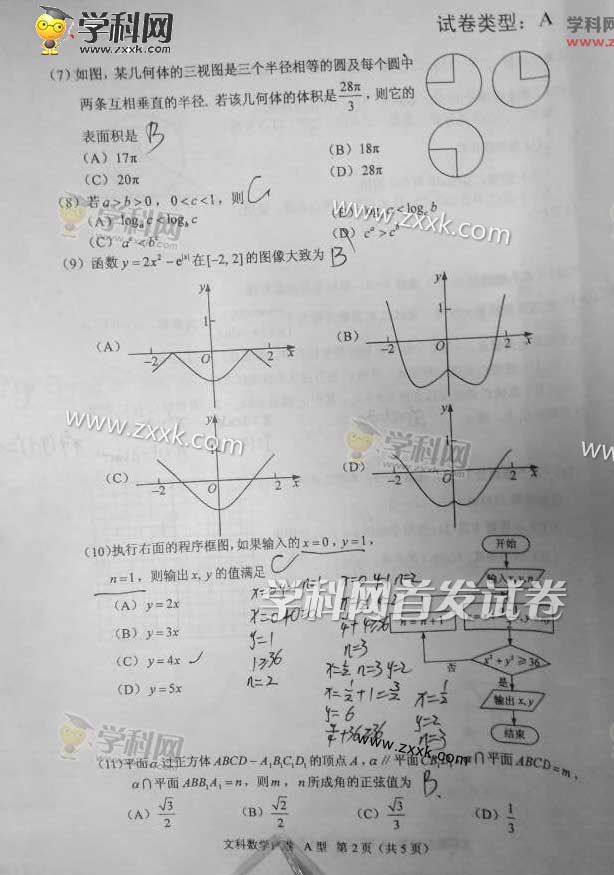 学科网
www.zxxk.com
试卷类型：A
(7) 如图，某几何体的三视图是三个半径相等的圆及每个圆中
两条互相垂直的半径. 若该几何体的体积是 28π/3，则它的
表面积是 B
(A) 17π (B) 18π
(C) 20π (D) 28π
(8) 若 a>b>0，0<c<1，则 C
(A) logₐc<log_b c (B) <log_c b
(C) aᶜ<bᶜ (D) cᵃ>cᵇ
www.zxxk.com
(9) 函数 y=2x²−e^|x| 在[−2, 2]的图像大致为 B
(A) y 1 −2 O 2 x
(B) y 1 −2 O 2 x
www.zxxk.com
学科网
(C) y 1 −2 O 2 x
(D) y −2 O 2 x
(10) 执行右面的程序框图，如果输入的 x=0，y=1，
n=1，则输出 x, y 的值满足 C
(A) y=2x
(B) y=3x
(C) y=4x
(D) y=5x
y=1
1≥36
n=2
n=3
n=3 y=2
y=6
y=2
n=3
开始
输入x,y,n
n=n+1
x²+y²≥36
否
是
输出x,y
结束
学科网首发试卷
学科网
www.zxxk.com
www.zxxk.com
(11) 平面α过正方体 ABCD−A₁B₁C₁D₁ 的顶点 A，α∥平面 CB₁D₁，α∩平面 ABCD=m，
α∩平面 ABB₁A₁=n，则 m，n 所成角的正弦值为 B.
(A) √3/2 (B) √2/2 (C) √3/3 (D) 1/3
文科数学试卷 A型 第2页（共5页）